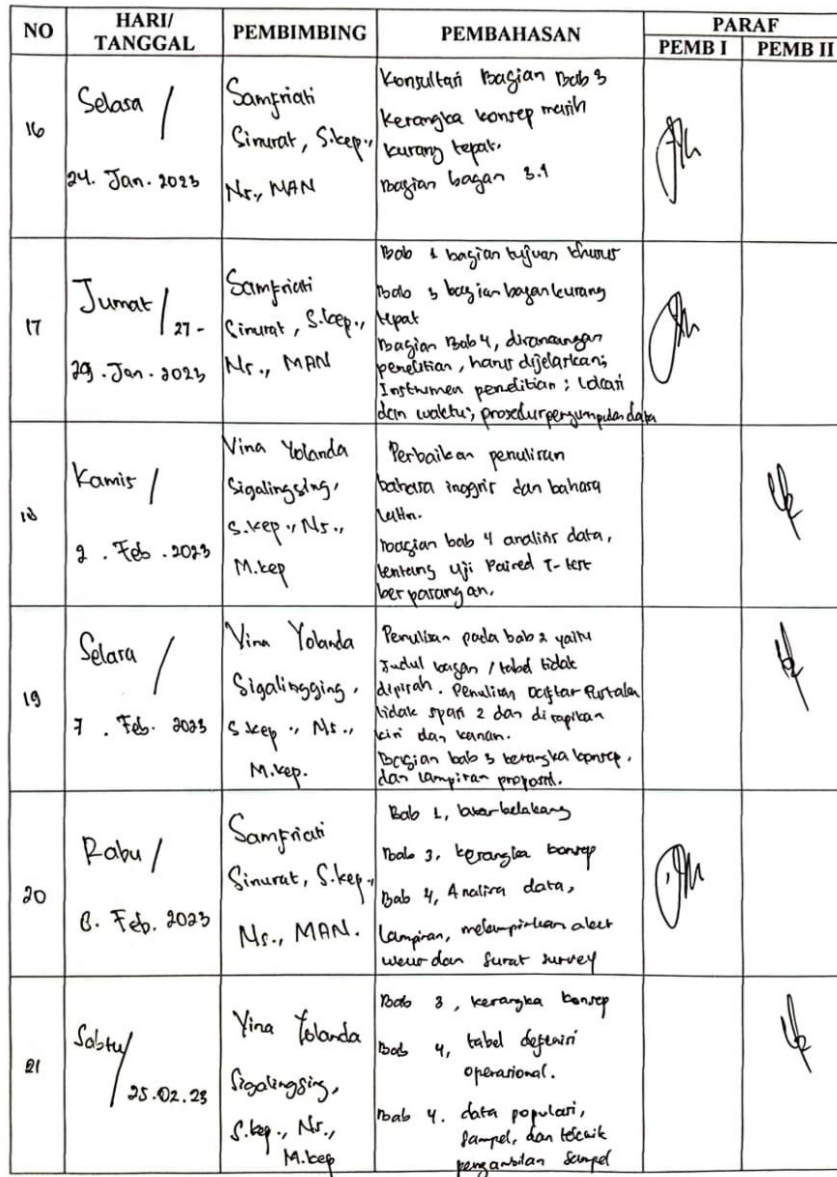 NO HARI/ TANGGAL PEMBIMBING PEMBAHASAN PARAF
PEMB I PEMB II
16
Selasa /
24. Jan. 2023
Samfriati
Sinurat, S.kep.,
Ns., MAN
Konsultasi Bagian Bab 3
kerangka konsep masih
kurang tepat.
Bagian bagan 3.1
17
Jumat / 27 -
29. Jan. 2023
Samfriati
Sinurat, S.kep.,
Ns., MAN
Bab 1 bagian tujuan khusus
Bab 3 bagian bagan kurang
tepat
Bagian Bab 4, dirancangan
penelitian, harus dijelaskan;
Instrumen penelitian; lokasi
dan waktu; prosedur pengumpulan data
18
Kamis /
2. Feb. 2023
Vina Yolanda
Sigalingging,
S.kep., Ns.,
M.kep
Perbaikan penulisan
bahasa inggris dan bahasa
latin.
Bagian bab 4 analisis data,
tentang Uji Paired T-test
berpasangan.
19
Selasa /
7. Feb. 2023
Vina Yolanda
Sigalingging,
S.kep., Ns.,
M.kep.
Penulisan pada bab 2 yaitu
Judul bagan / tabel tidak
dipisah. Penulisan Daftar Pustaka
tidak spasi 2 dan dirapikan
kiri dan kanan.
Bagian bab 3 kerangka konsep,
dan lampiran proposal.
20
Rabu /
8. Feb. 2023
Samfriati
Sinurat, S.kep.,
Ns., MAN.
Bab 1, latar belakang
Bab 3, kerangka konsep
Bab 4, Analisa data,
Lampiran, melampirkan
dan surat survey
21
Sabtu /
25.02.23
Vina Yolanda
Sigalingging,
S.kep., Ns.,
M.kep
Bab 3, kerangka konsep
Bab 4, tabel definisi
operasional.
Bab 4. data populasi,
sampel, dan teknik
pengambilan sampel